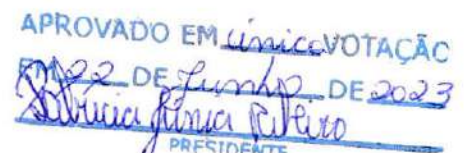 APROVADO EM única VOTAÇÃO
EM 22 DE Junho DE 2023
Patrícia Júnia Ribeiro
PRESIDENTE